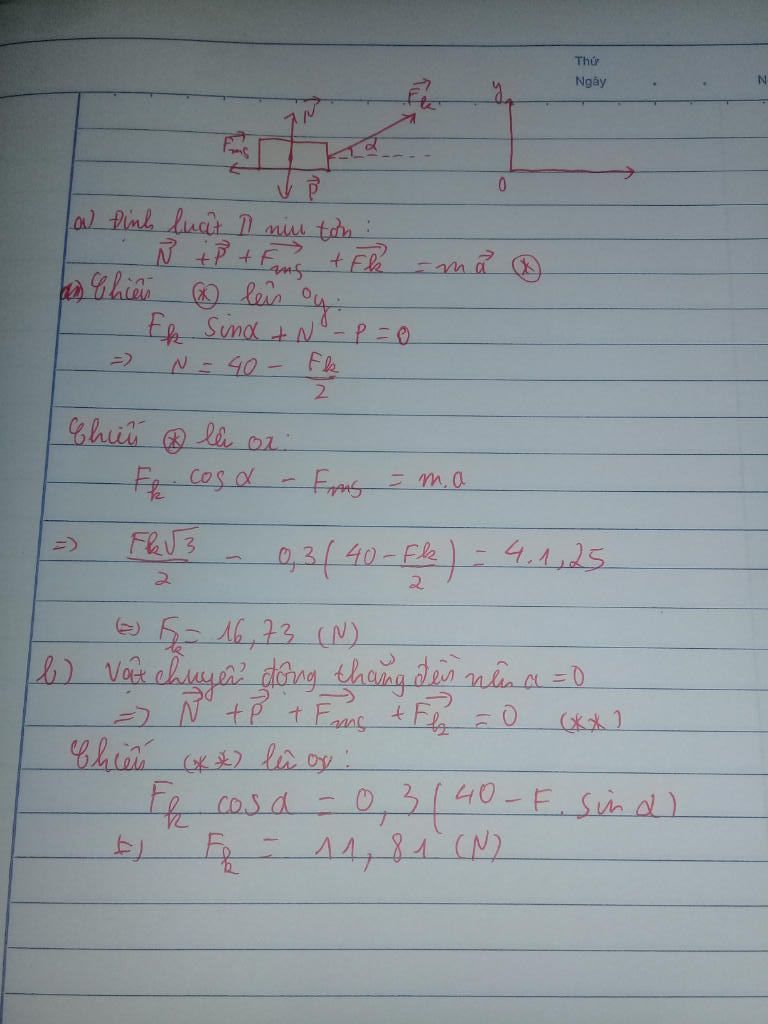 Thứ
Ngày
N
y
F⃗k
N⃗
F⃗ms
α
P⃗
O
a) Định luật II niu tơn:
N⃗ + P⃗ + F⃗ms + F⃗k = ma⃗ (*)
Chiếu (*) lên oy:
Fk sinα + N - P = 0
=> N = 40 - Fk/2
Chiếu (*) lên ox:
Fk. cosα - Fms = m.a
=> Fk√3/2 - 0,3(40 - Fk/2) = 4.1,25
(=) Fk = 16,73 (N)
b) Vật chuyển động thẳng đều nên a = 0
=> N⃗ + P⃗ + F⃗ms + F⃗k = 0 (**)
Chiếu (**) lên ox:
Fk cosα = 0,3(40 - F. sinα)
(=) Fk = 11,81 (N)